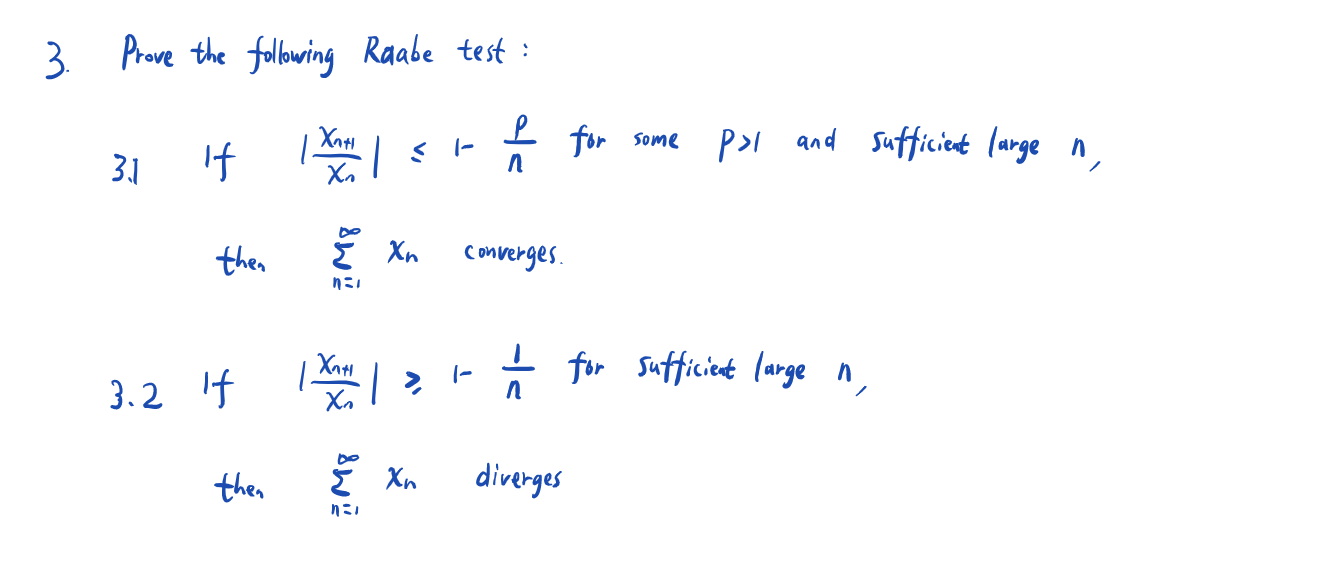 3. Prove the following Raabe test :
3.1 If |x_{n+1}/x_n| ≤ 1 - p/n for some p>1 and sufficient large n,
then ∑_{n=1}^{∞} x_n converges.
3.2 If |x_{n+1}/x_n| ≥ 1 - 1/n for sufficient large n,
then ∑_{n=1}^{∞} x_n diverges